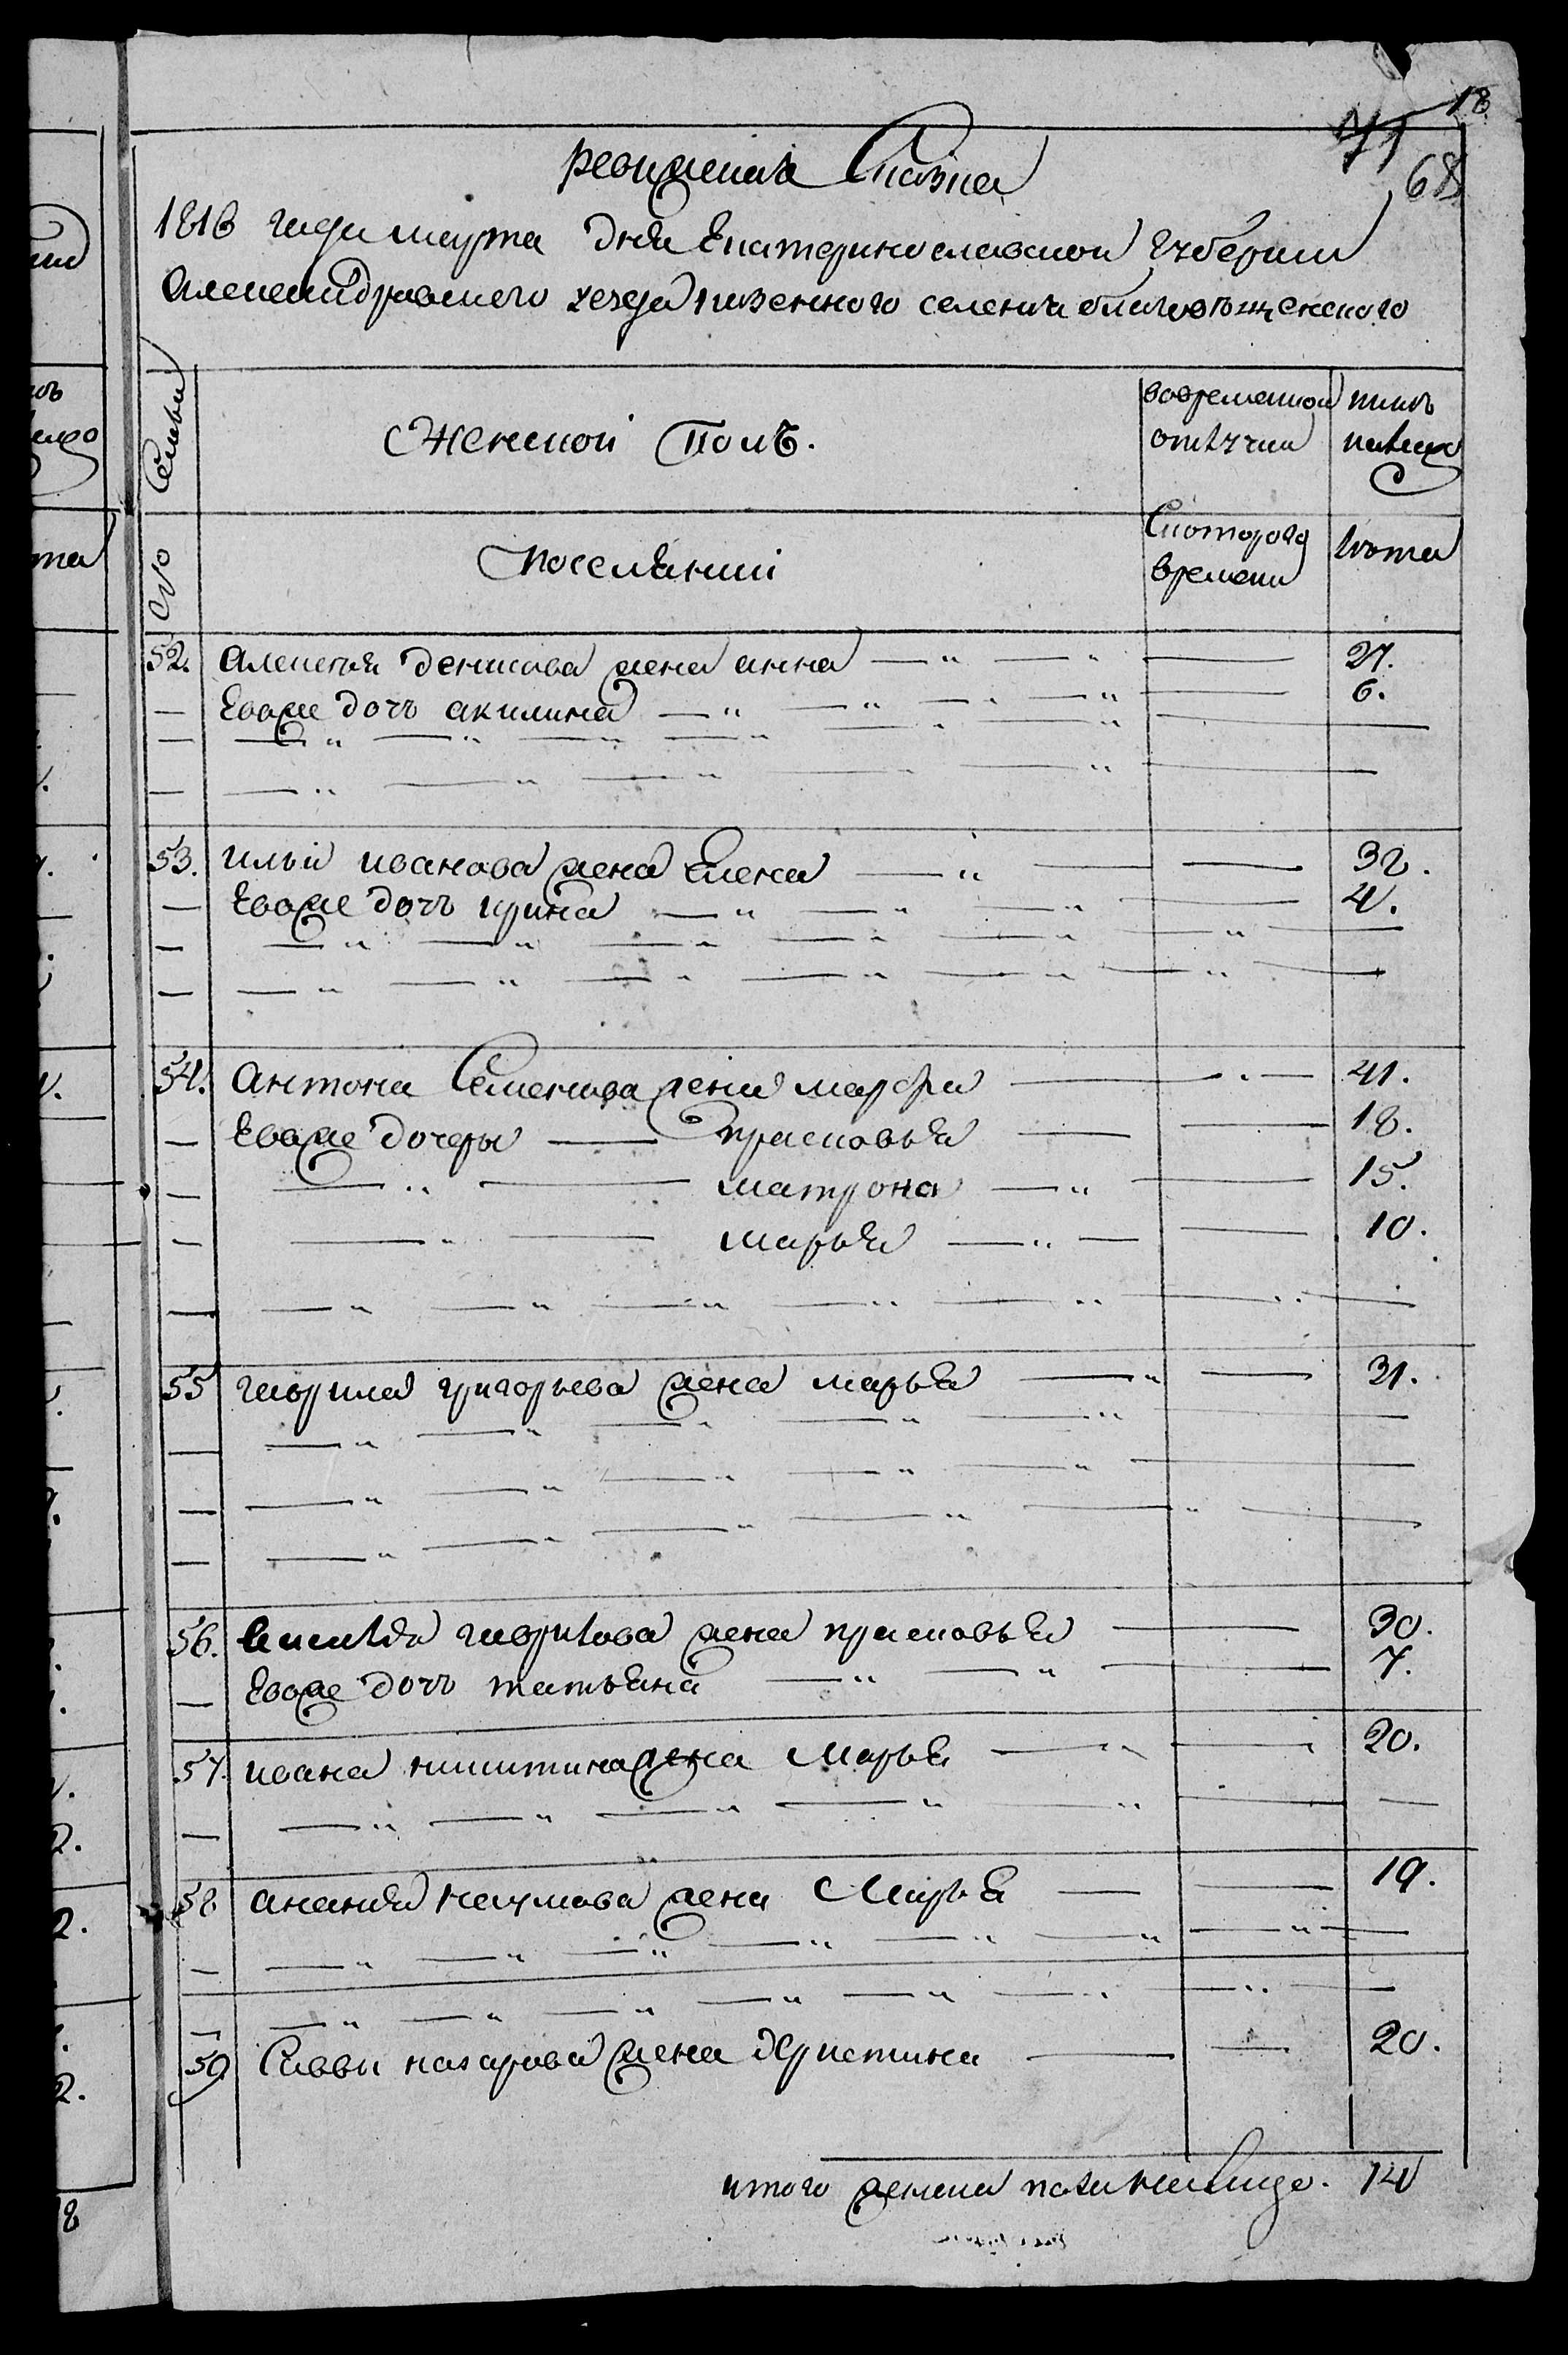 18
68
ревижская Сказка
1816 года марта дня Екатеринославской губернии
Александровского уезда казенного селения благовѣщенского
Семьи
Женской полъ.
вовременной отлучки
нынѣ налицо
№
Поселянии
Скоторого времени
лѣта
52. Алексѣя денисова жена анна — " — " — 27.
— Евоже дочь акилина — " — " — " — 6.
53. ильи иванова жена Елена — " — 32.
— Евоже дочь ирина — " — " — " — 4.
54. Антона Семенова жена марфа — 41.
— Евоже дочеры — прасковья — 18.
— — " — матрона — " — 15.
— — " — марья — " — 10.
55 гаврила григорьева жена марья — " — 31.
56. гаврилова жена прасковья — 30.
— Евоже дочь татьяна — " — " — 7.
57. ивана никитина жена Марья — " — 20.
58 анания наумова жена Марья — 19.
59 Саввы назарова жена христина — 20.
итого женска пола налицо. 14
8